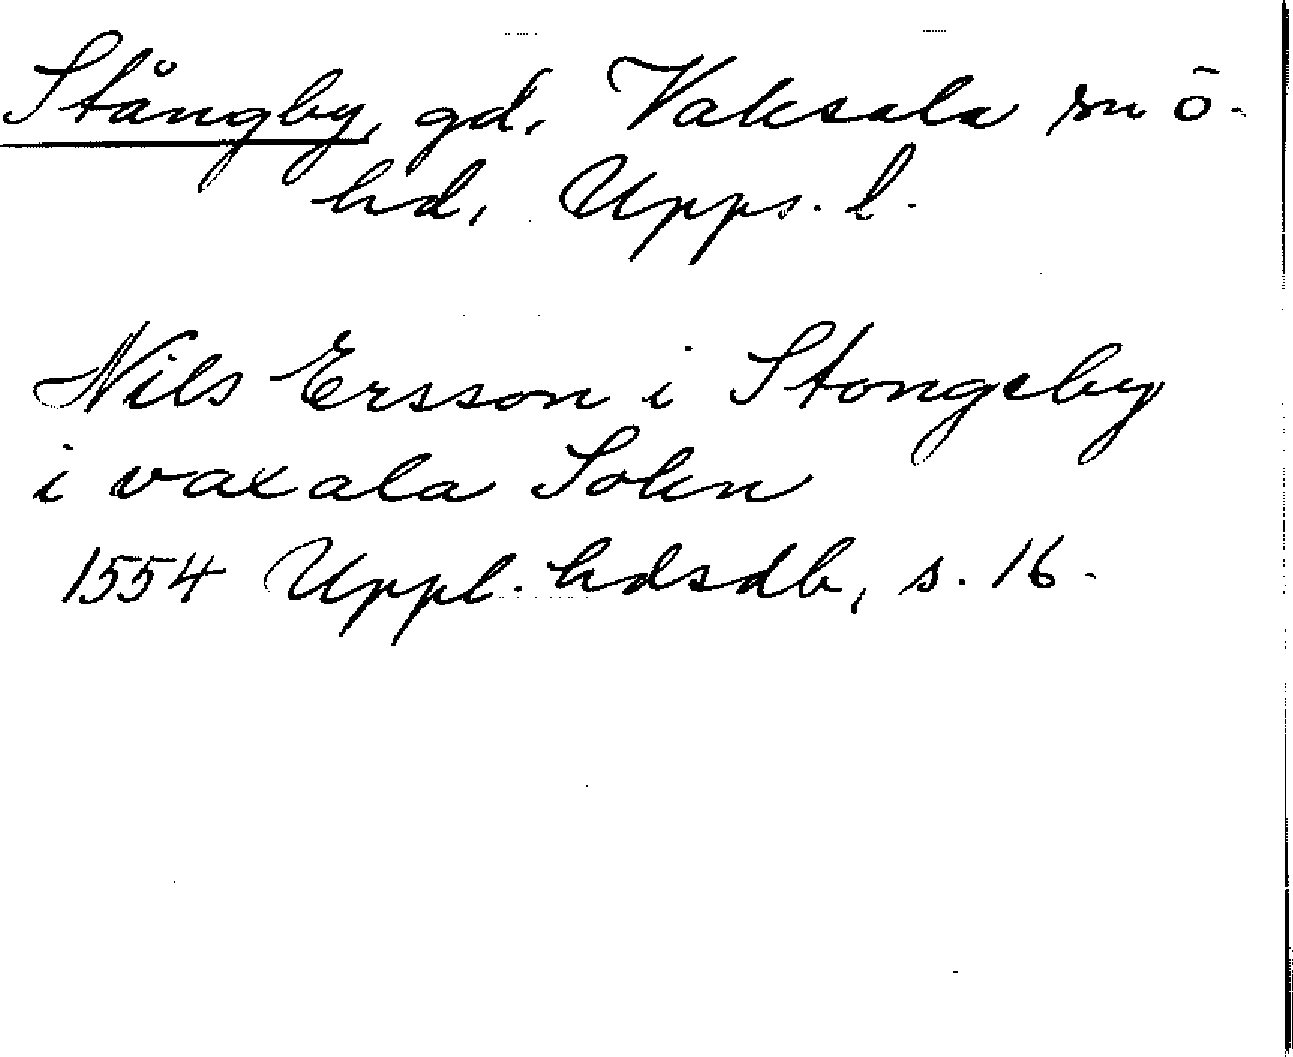 Stångby, gd, Vaksala sn o-
hd, Upps. l.
Nils Ersson i Stongeby
i vaxala Sokn
1554 Uppl. hdsdb, s. 16.